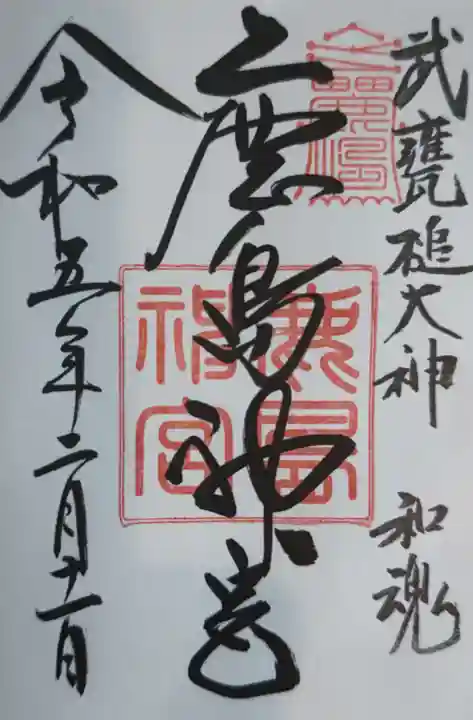 武甕槌大神 和魂
鹿島神宮
鹿島
神宮
令和五年二月十一日